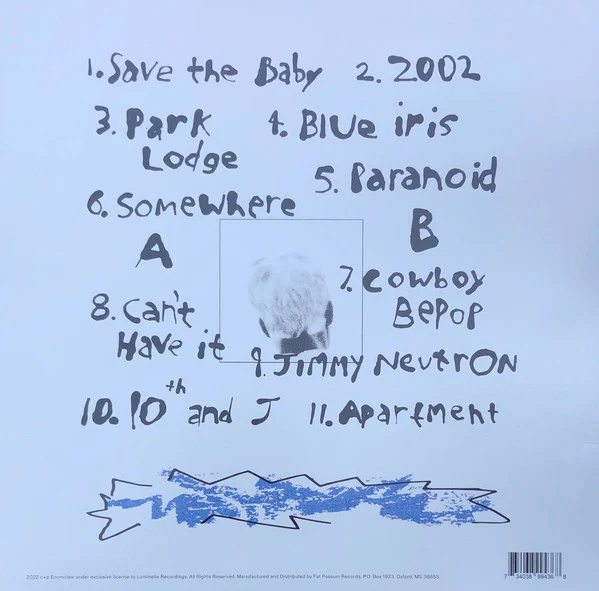 1. Save the Baby 2. 2002
3. Park Lodge 4. Blue iris
5. Paranoid
6. Somewhere
A B
7. Cowboy Bepop
8. Can't Have it
9. Jimmy Neutron
10. 10th and J 11. Apartment
2022 c+p Enumclaw under exclusive license to Luminelle Recordings. All Rights Reserved. Manufactured and Distributed by Fat Possum Records, P.O. Box 1923, Oxford, MS 38655.
7 34038 99436 8